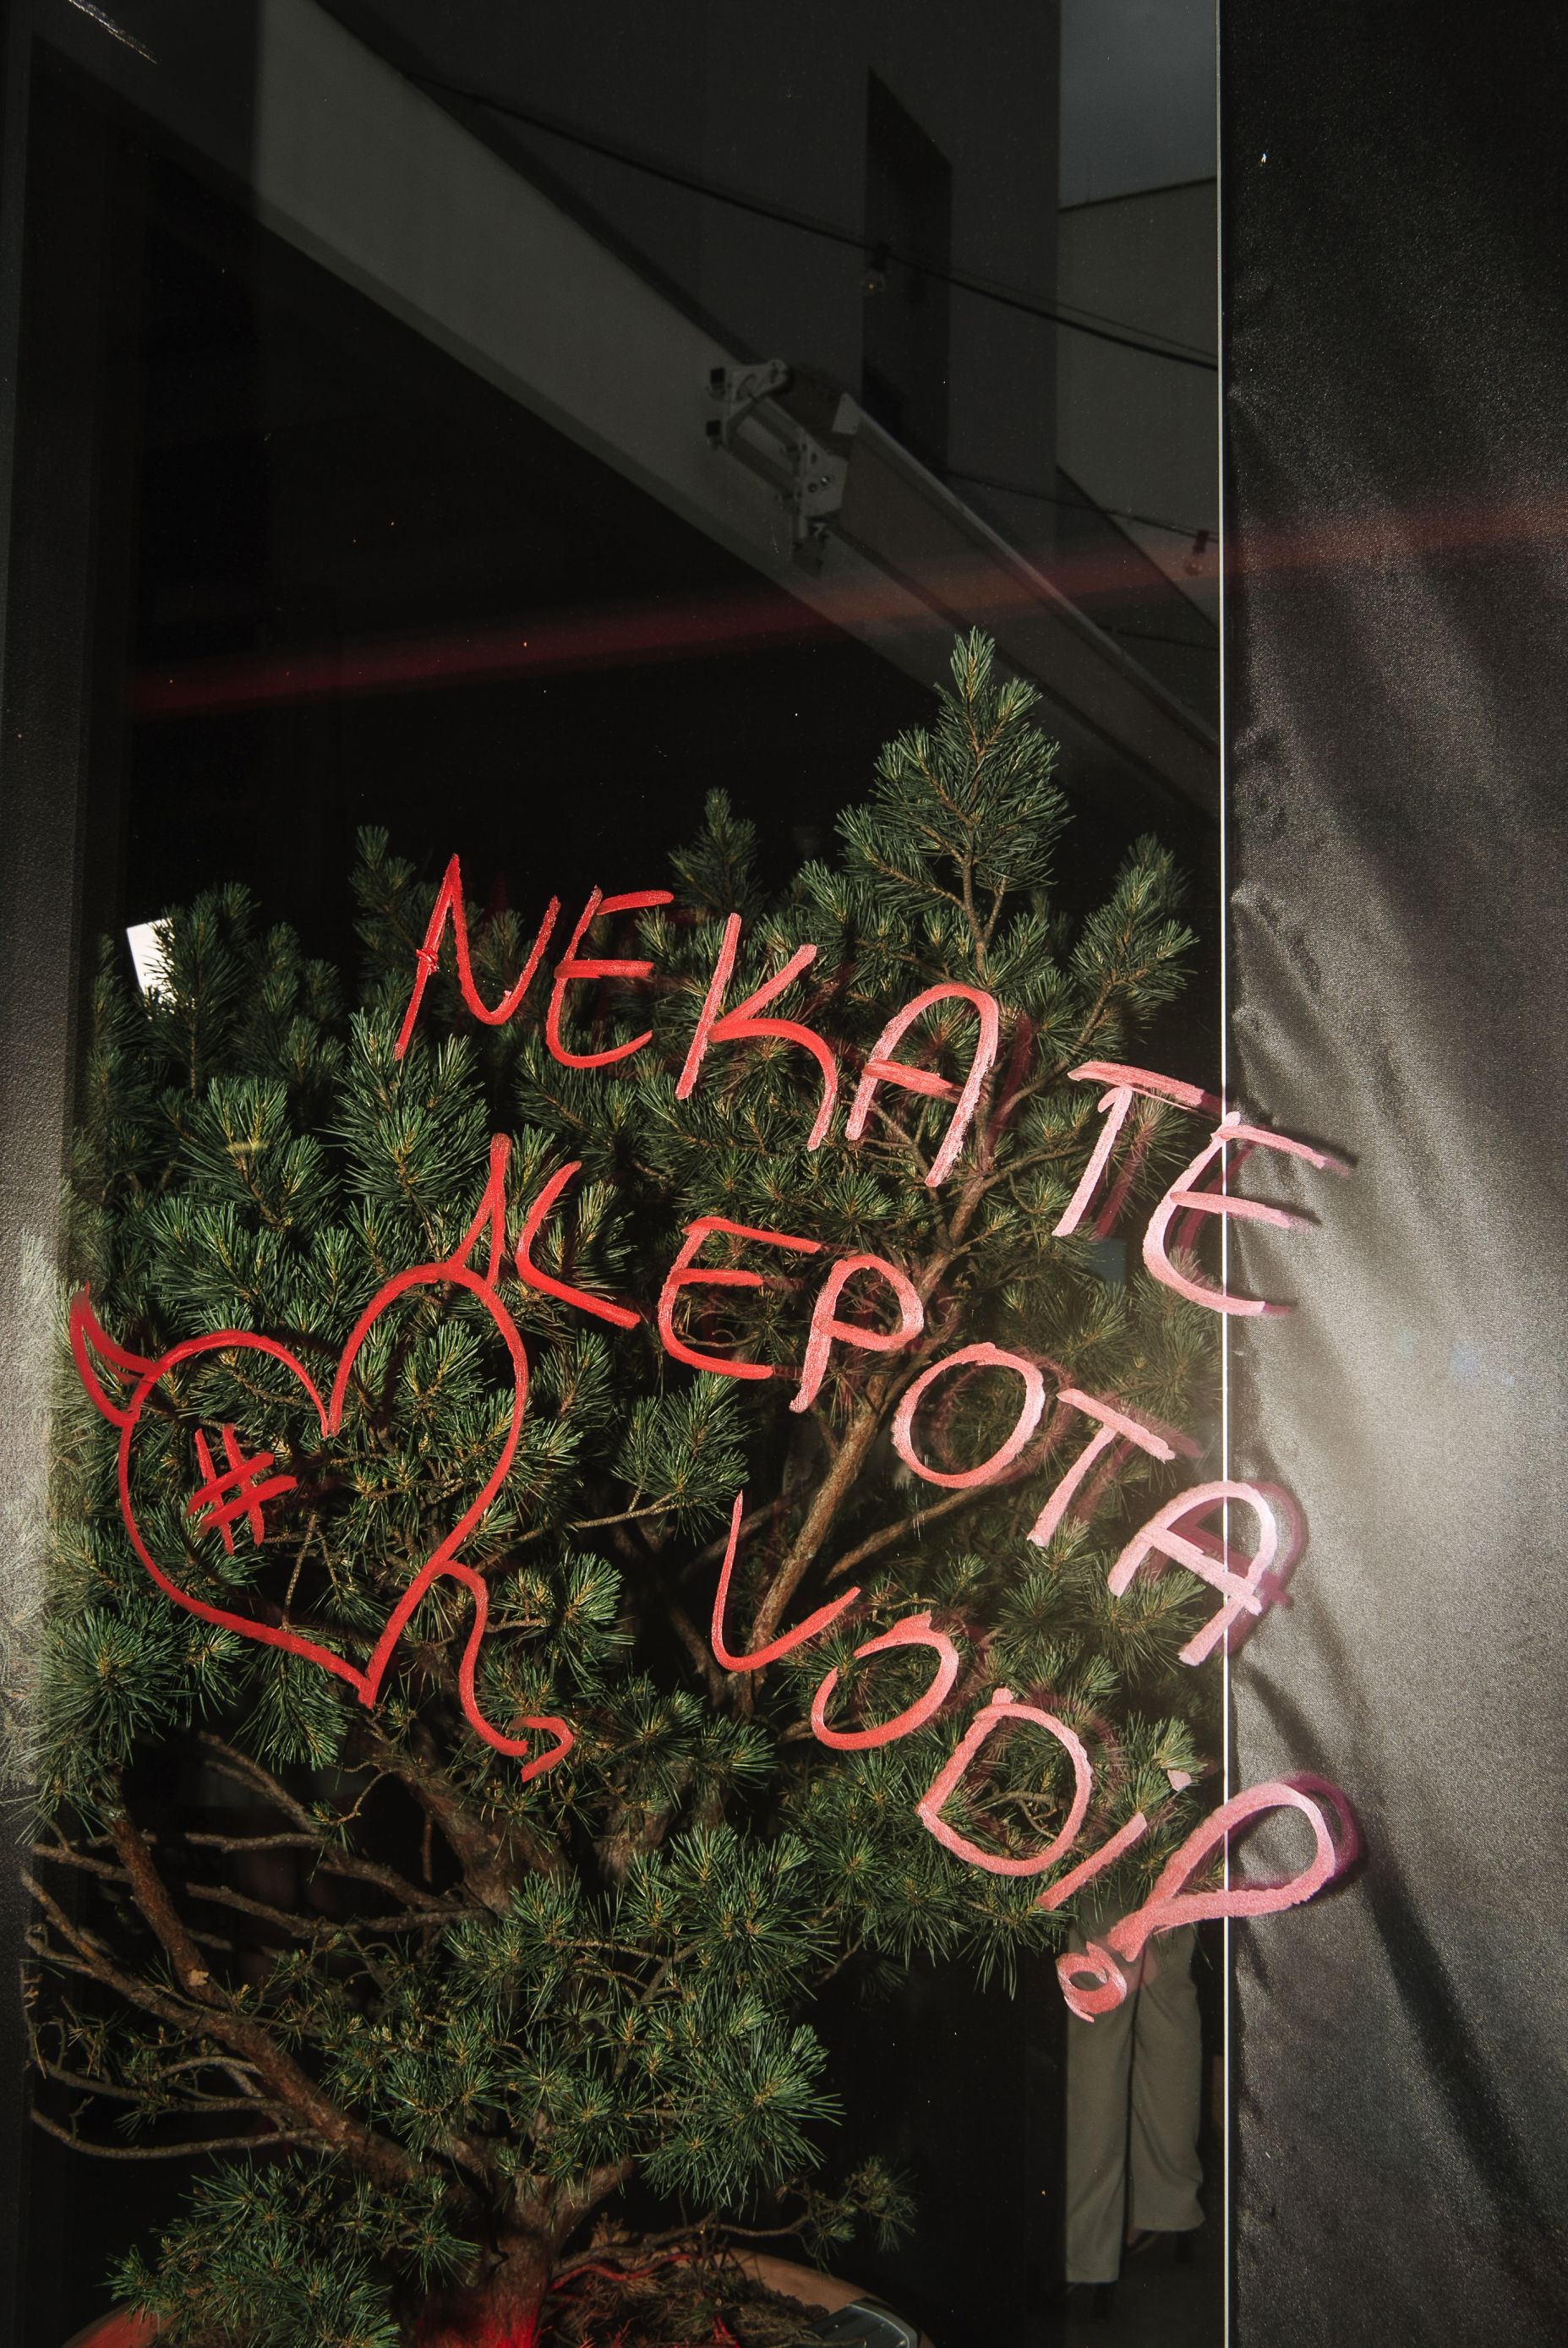 NEKA TE
LEPOTA
VODi!
#